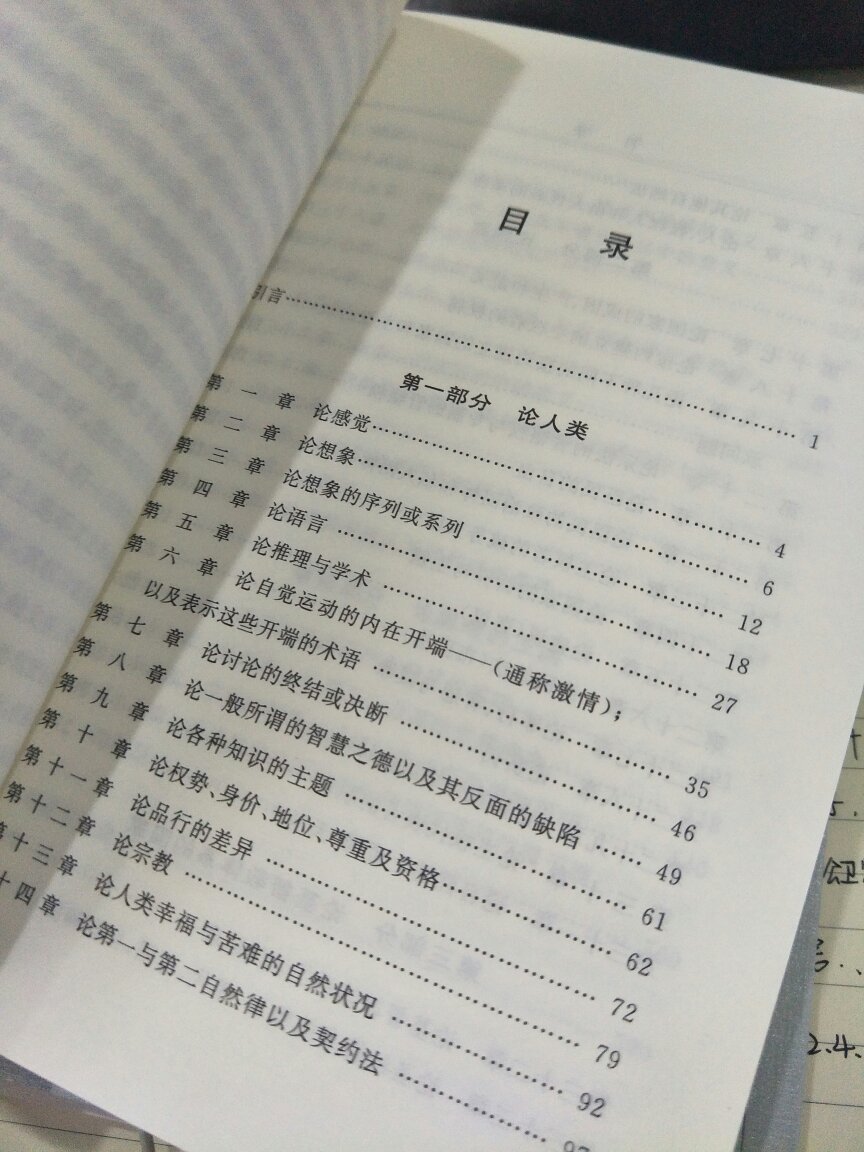 目 录
引言…………………………………………………… 1
第一部分 论人类
第一章 论感觉…………………………………… 4
第二章 论想象…………………………………… 6
第三章 论想象的序列或系列 …………………… 12
第四章 论语言 …………………………………… 18
第五章 论推理与学术 …………………………… 27
第六章 论自觉运动的内在开端——(通称激情);
以及表示这些开端的术语 ………………………… 35
第七章 论讨论的终结或决断 …………………… 46
第八章 论一般所谓的智慧之德以及其反面的缺陷 …… 49
第九章 论各种知识的主题 ……………………… 61
第十章 论权势、身价、地位、尊重及资格………… 62
第十一章 论品行的差异 ………………………… 72
第十二章 论宗教 ………………………………… 79
十三章 论人类幸福与苦难的自然状况 ………… 92
十四章 论第一与第二自然律以及契约法 ………
2.4.